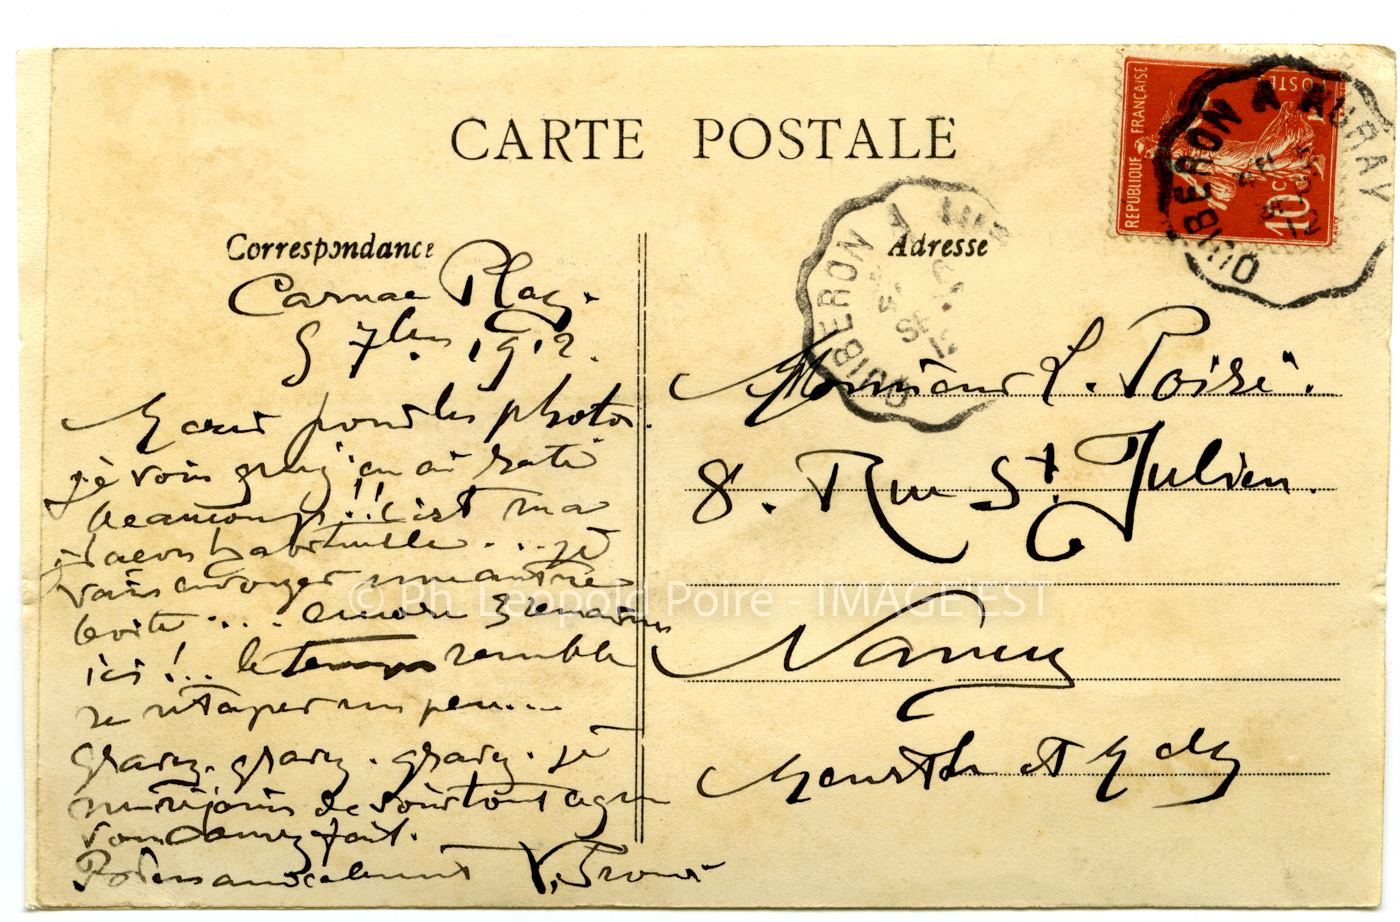 CARTE POSTALE
Correspondance
Carnac Plag.
5 7bre 1912.
Merci pour les photos.
je vois que j'en ai raté
beaucoup!!! C'est ma
façon habituelle.... je
vais envoyer une autre
boite.... encore 3 semaines
ici!... le temps semble
se retaper un peu....
Gravez. gravez. gravez. je
me réjouis de voir tout ce que
vous avez fait.
V. Prouvé
Adresse
Monsieur L. Poiré.
8. Rue St. Julien.
Nancy
Meurthe et M elle
REPUBLIQUE FRANÇAISE
POSTES
10 c
QUIBERON A AURAY
QUIBERON A
© Ph. Léopold Poiré - IMAGE'EST